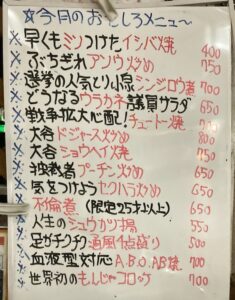 ☆今月のおもしろメニュ〜
※ 早くもミソつけたイシバ焼 400
※ ぶちぎれアソウ炒め 750
※ 選挙の人気とり小泉シンジロウ煮 700
※ どうなるウラカネ議員サラダ 650
※ 戦争拡大心配!チュートー焼
※ 大谷ドジャース炒め 800
※ 大谷ショウヘイ焼 750
※ 独裁者プーチン炒め 650
※ 気をつけようセクハラ炒め 650
※ 不倫煮(限定25才以上) 650
※ 人生のシュウカツ揚 550
※ 足がチクチク通風4点盛り 500
※ 血液型対応A.B.O.AB焼 700
※ 世界初のもんじゃコロッケ 700